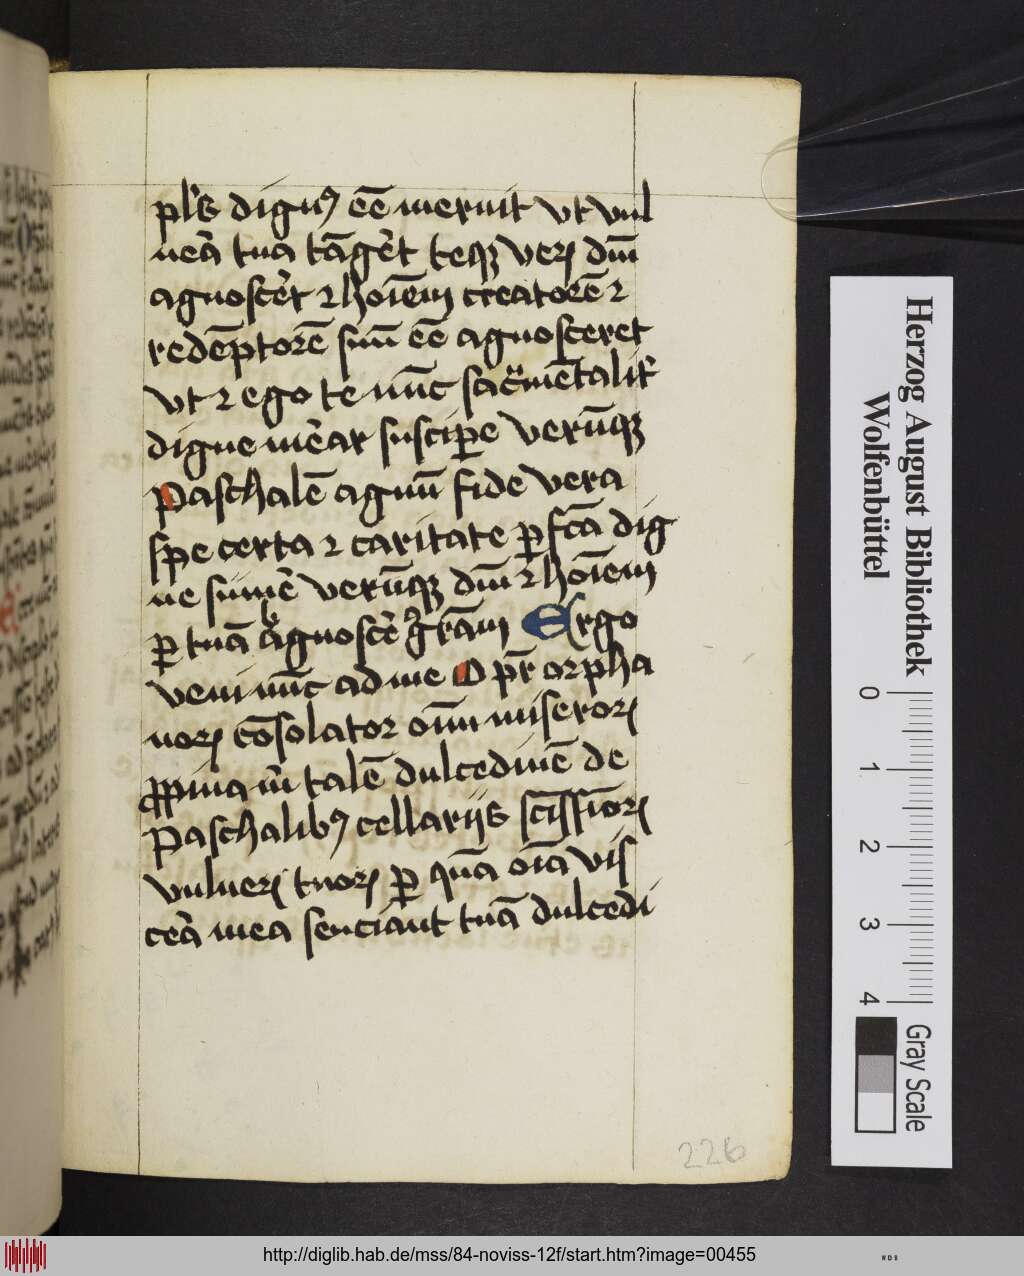 pl'is dign9 ēē meruit vt vul
neā tua tāgēt teqꝫ veꝝ dm̄
agnoscēt ⁊ hoīem creatorē ⁊
redēptorē suū ēē agnosceret
vt ⁊ ego te nūc sac̄mētalit'
digne mēar suscipe verūqꝫ
Paschalē agnū fide vera
spe certa ⁊ caritate ꝑfcā dig
ne sumē verūqꝫ dm̄ ⁊ hoīem
ꝑ tuā agnoscē grām Ergo
veni nūc ad me O pr̄ orpha
noꝝ cōsolator om̄ miseroꝝ
ꝓpina m̄ talē dulcedinē de
Paschalibꝰ cellarijs
vulneꝝ tuoꝝ ꝑ quā oīa vis
ceā mea senciant tuā dulcedi
226
Herzog August Bibliothek
Wolfenbüttel
0 1 2 3 4
Gray Scale
http://diglib.hab.de/mss/84-noviss-12f/start.htm?image=00455